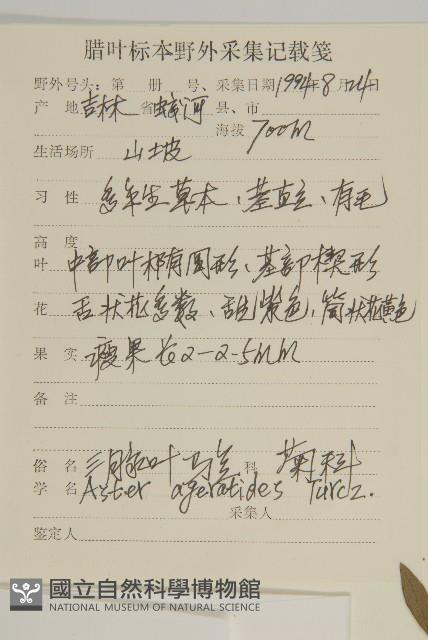 腊叶标本野外采集记载笺
野外号头：第 册 号、采集日期1994年8月24日
产 地吉林 省蛟河 县、市
海拔 700m
生活场所 山坡
习 性 多年生草本、茎直立、有毛
高 度
叶 中部叶椭圆形、基部楔形
花 舌状花多数、舌片紫色，筒状花黄色
果 实 瘦果长2-2.5mm
备 注
俗 名 三脉叶马兰 科 菊科
学 名 Aster ageratides Turcz.
采集人
鉴定人
國立自然科學博物館
NATIONAL MUSEUM OF NATURAL SCIENCE